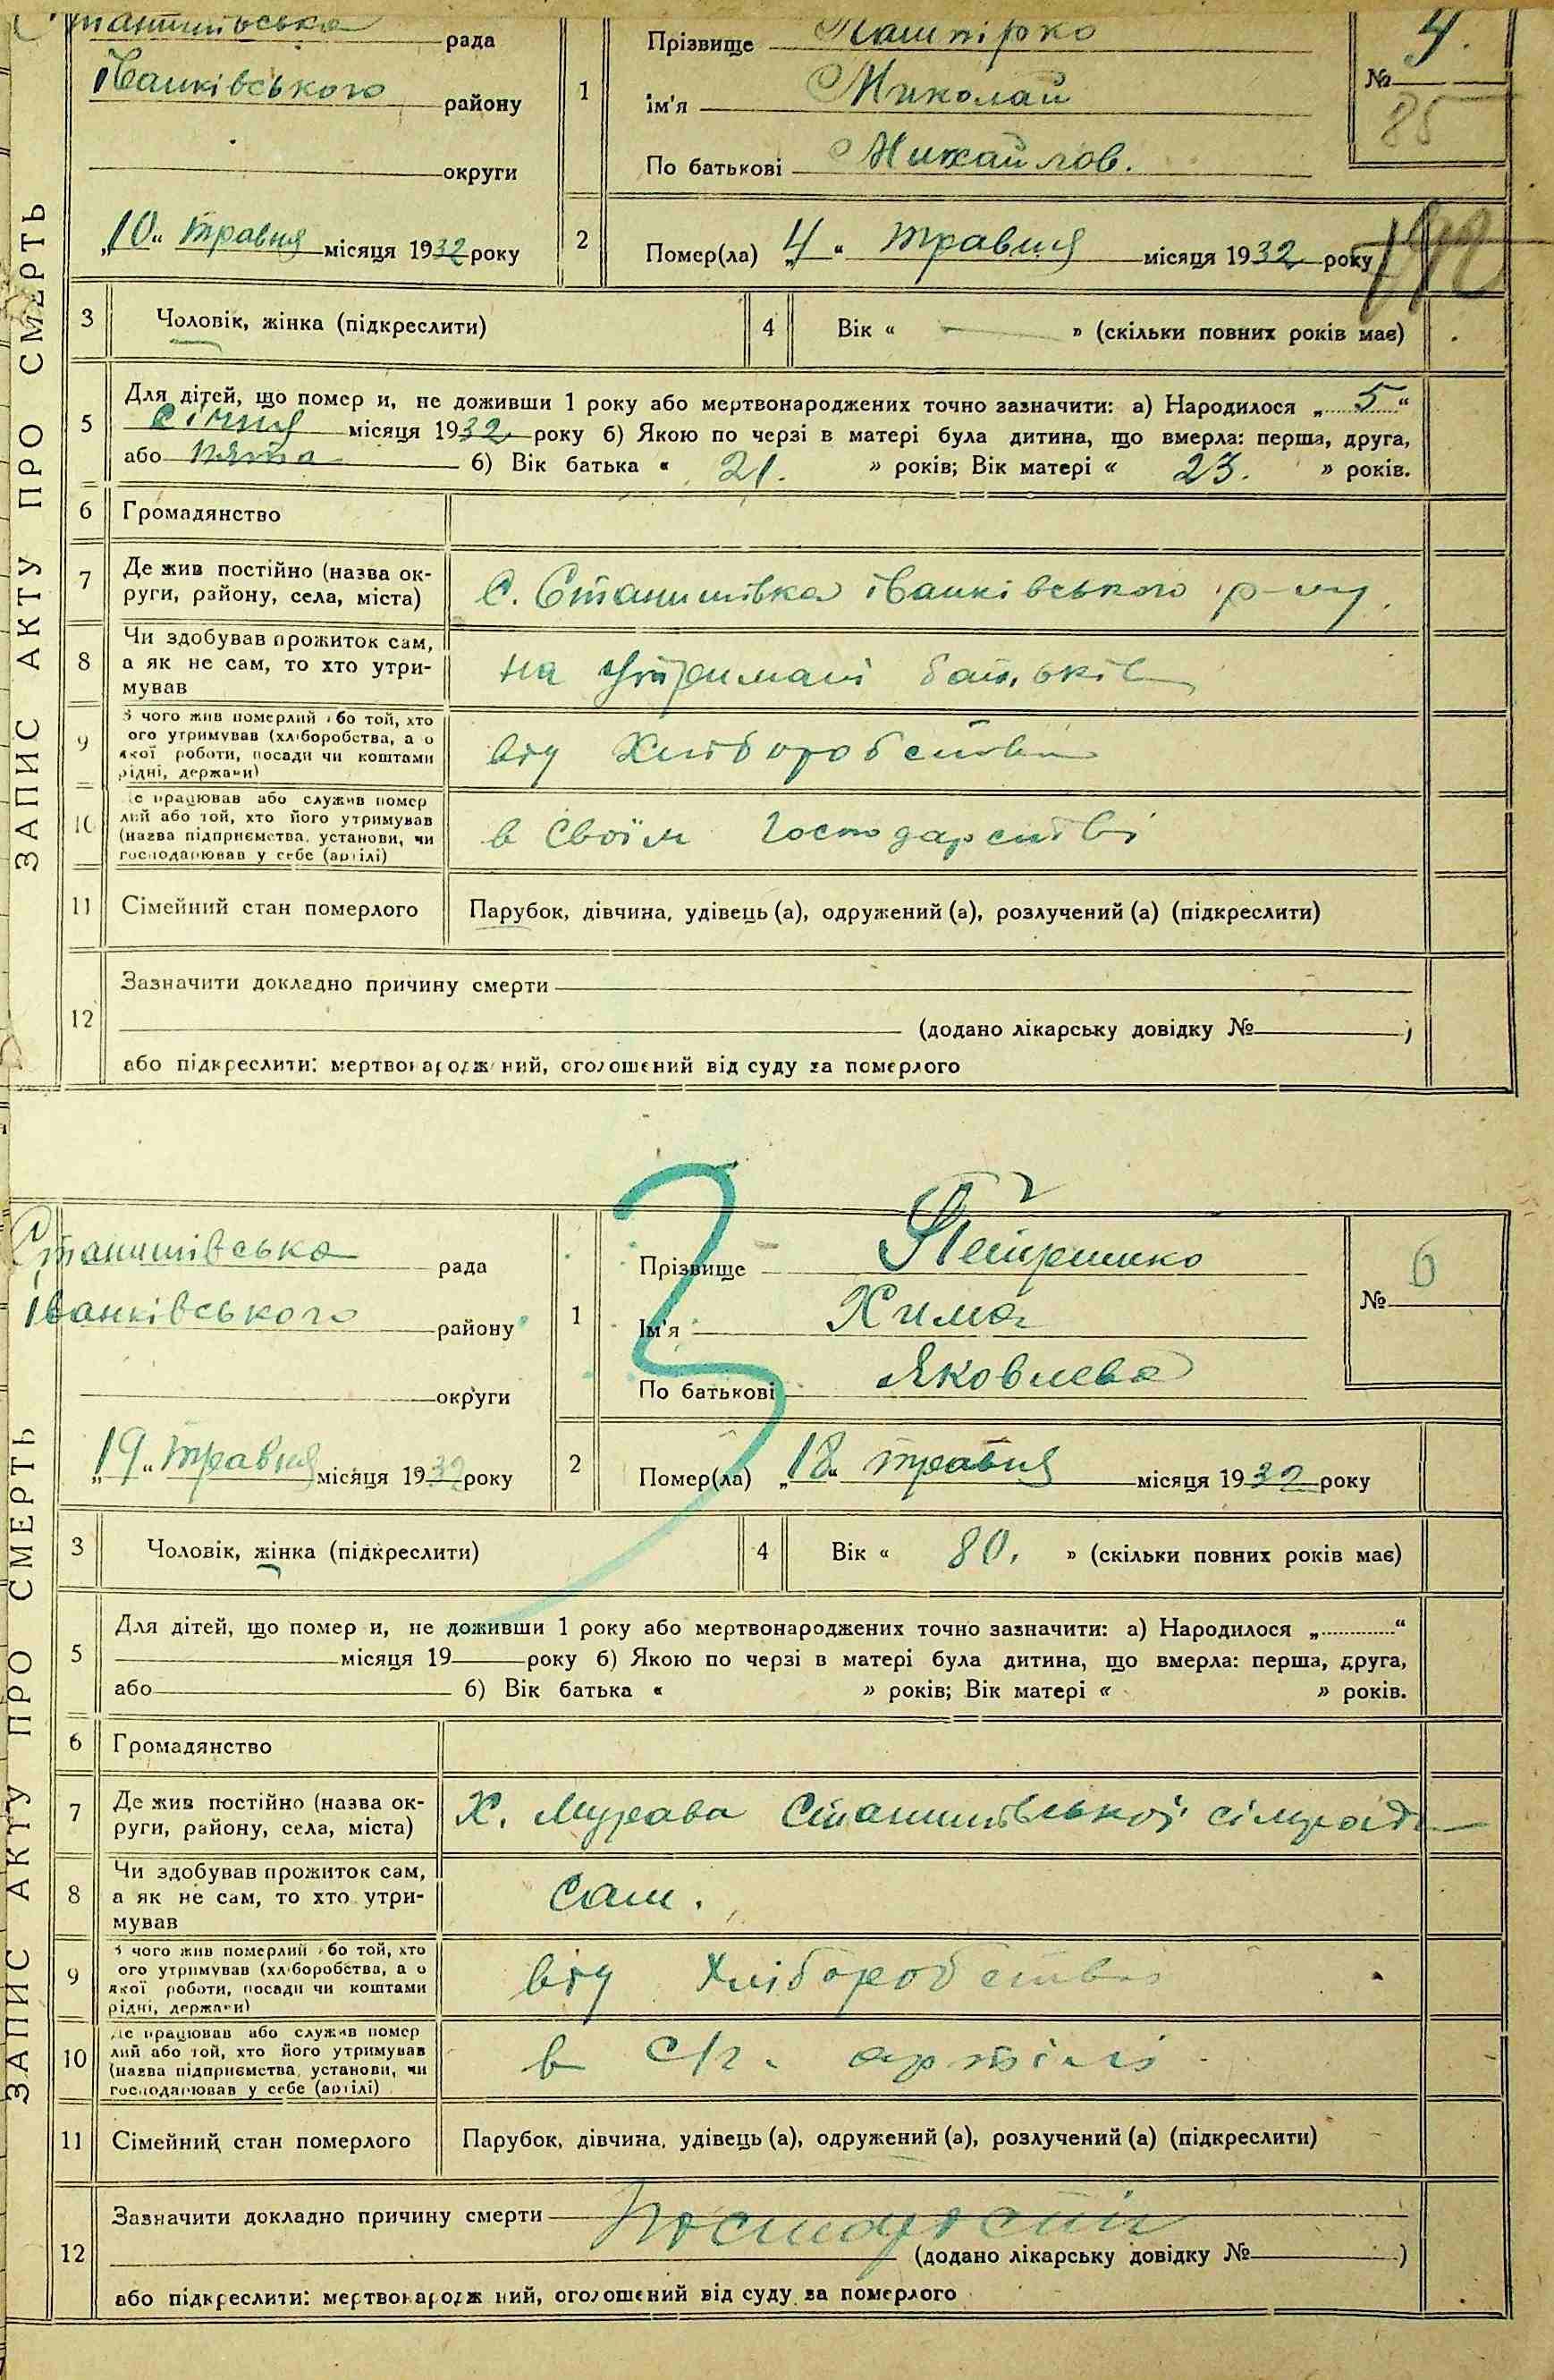 ЗАПИС АКТУ ПРО СМЕРТЬ
Станишівська рада
Іванківського району
округи
„10“ травня місяця 1932 року
1 Прізвище Пашпірко
Ім'я Миколай
По батькові Михайлов.
№ 4.
85
2 Помер(ла) „4“ травня місяця 1932 року
3 Чоловік, жінка (підкреслити) 4 Вік « — » (скільки повних років має)
5 Для дітей, що помер и, не доживши 1 року або мертвонароджених точно зазначити: а) Народилося „5“
січня місяця 1932 року б) Якою по черзі в матері була дитина, що вмерла: перша, друга,
або пята б) Вік батька « 21. » років; Вік матері « 23. » років.
6 Громадянство
7 Де жив постійно (назва ок-
руги, району, села, міста) С. Станишівка іванківського р-ну.
8 Чи здобував прожиток сам,
а як не сам, то хто утри-
мував на утримані батьків
9 З чого жив померлий або той, хто
ого утримував (хліборобства, а о
якої роботи, посади чи коштами
рідні, держави) від Хліборобства
10 Де працював або служив помер
лий або той, хто його утримував
(назва підприємства, установи, чи
господарював у себе (артілі) в Своїм Господарстві
11 Сімейний стан померлого Парубок, дівчина, удівець (а), одружений (а), розлучений (а) (підкреслити)
12 Зазначити докладно причину смерти
(додано лікарську довідку № )
або підкреслити: мертвонародж ний, оголошений від суду за померлого
ЗАПИС АКТУ ПРО СМЕРТЬ
Станишівська рада
Іванківського району
округи
„19“ травня місяця 1932 року
1 Прізвище Петренко
Ім'я Хима
По батькові Яковлева
№ 6
2 Помер(ла) „18“ травня місяця 1932 року
3 Чоловік, жінка (підкреслити) 4 Вік « 80. » (скільки повних років має)
5 Для дітей, що помер и, не доживши 1 року або мертвонароджених точно зазначити: а) Народилося „ “
місяця 19 року б) Якою по черзі в матері була дитина, що вмерла: перша, друга,
або б) Вік батька « » років; Вік матері « » років.
6 Громадянство
7 Де жив постійно (назва ок-
руги, району, села, міста) Х. Мурава Станишівської сільради
8 Чи здобував прожиток сам,
а як не сам, то хто утри-
мував Сам.
9 З чого жив померлий або той, хто
ого утримував (хліборобства, а о
якої роботи, посади чи коштами
рідні, держави) від Хліборобства
10 Де працював або служив помер
лий або той, хто його утримував
(назва підприємства, установи, чи
господарював у себе (артілі) в С/г. артілі
11 Сімейний стан померлого Парубок, дівчина, удівець (а), одружений (а), розлучений (а) (підкреслити)
12 Зазначити докладно причину смерти по старости
(додано лікарську довідку № )
або підкреслити: мертвонародж ний, оголошений від суду за померлого